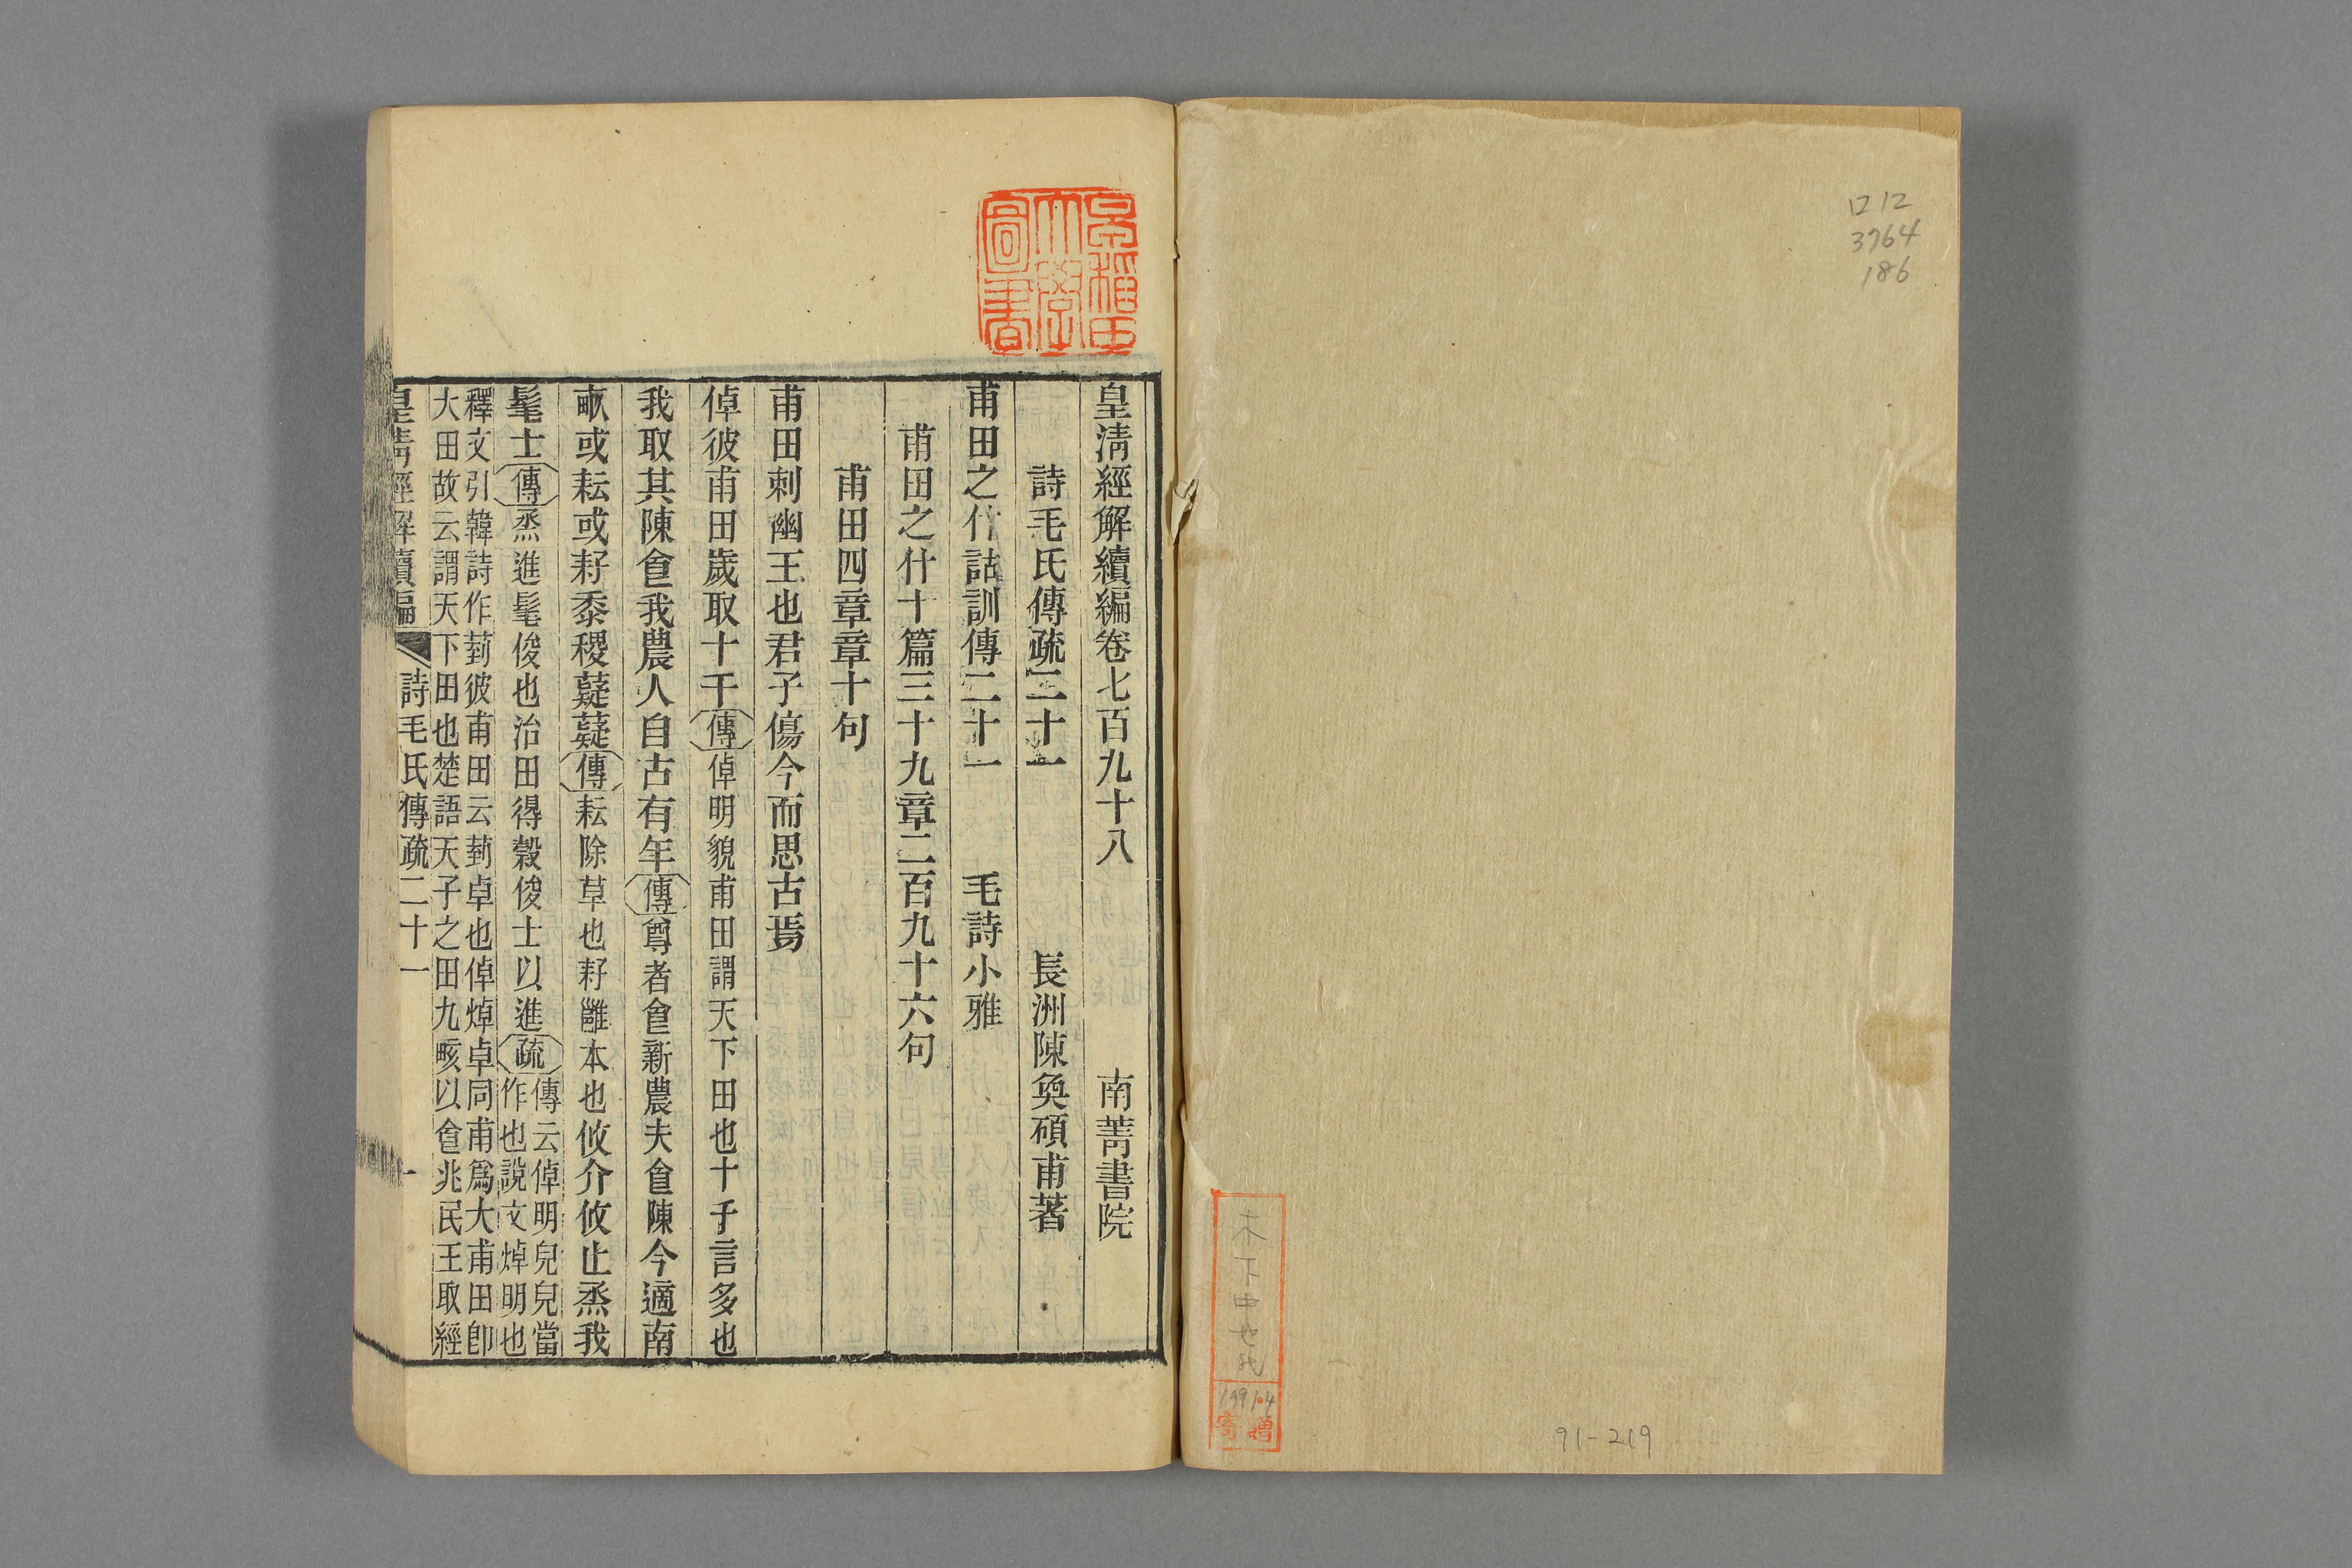 ロ12
3764
186
木下中也氏
1991.4
寄贈
91-219
早稲田
大學
圖書
皇清經解續編卷七百九十八　南菁書院
詩毛氏傳疏二十一　長洲陳奐碩甫著
甫田之什詁訓傳二十一　毛詩小雅
甫田之什十篇三十九章二百九十六句
甫田四章章十句
甫田刺幽王也君子傷今而思古焉
倬彼甫田歲取十千傳倬明貌甫田謂天下田也十千言多也
我取其陳食我農人自古有年傳尊者食新農夫食陳今適南
畝或耘或耔黍稷薿薿傳耘除草也耔雝本也攸介攸止烝我
髦士傳烝進髦俊也治田得穀俊士以進疏傳云倬明皃皃當
作也說文焯明也
釋文引韓詩作菿彼甫田云菿卓也倬焯卓同甫爲大甫田卽
大田故云謂天下田也楚語天子之田九畡以食兆民王取經
皇清經解續編　詩毛氏傳疏二十一　一